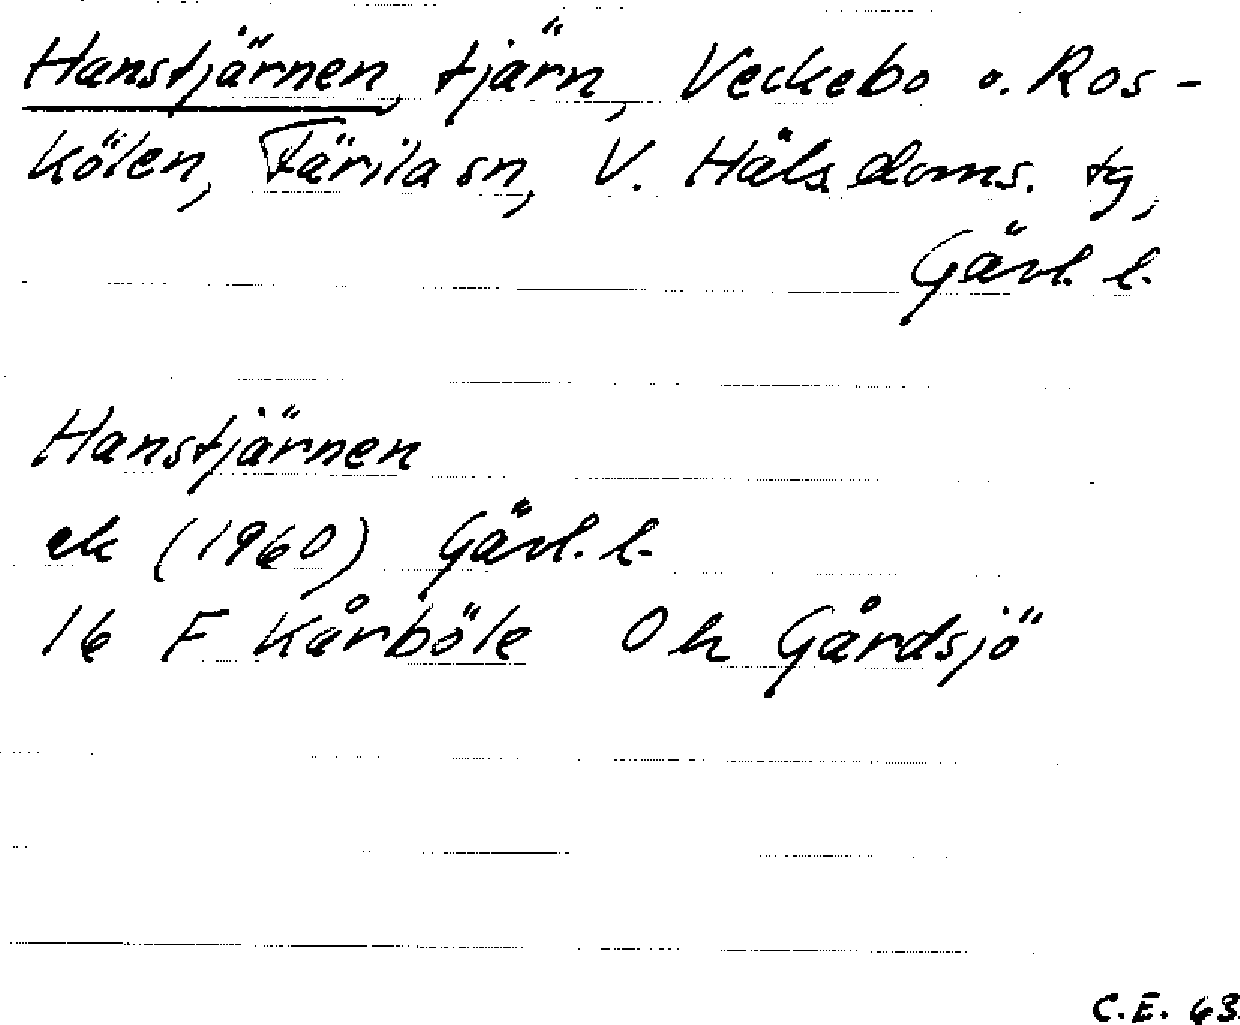 Hanstjärnen, tjärn, Veckebo o. Ros-
kölen, Färila sn, V. Häls. doms. tg,
Gävl. l.
Hanstjärnen
ek (1960) Gävl. l.
16 F Kårböle Oh Gårdsjö
C.E. 63